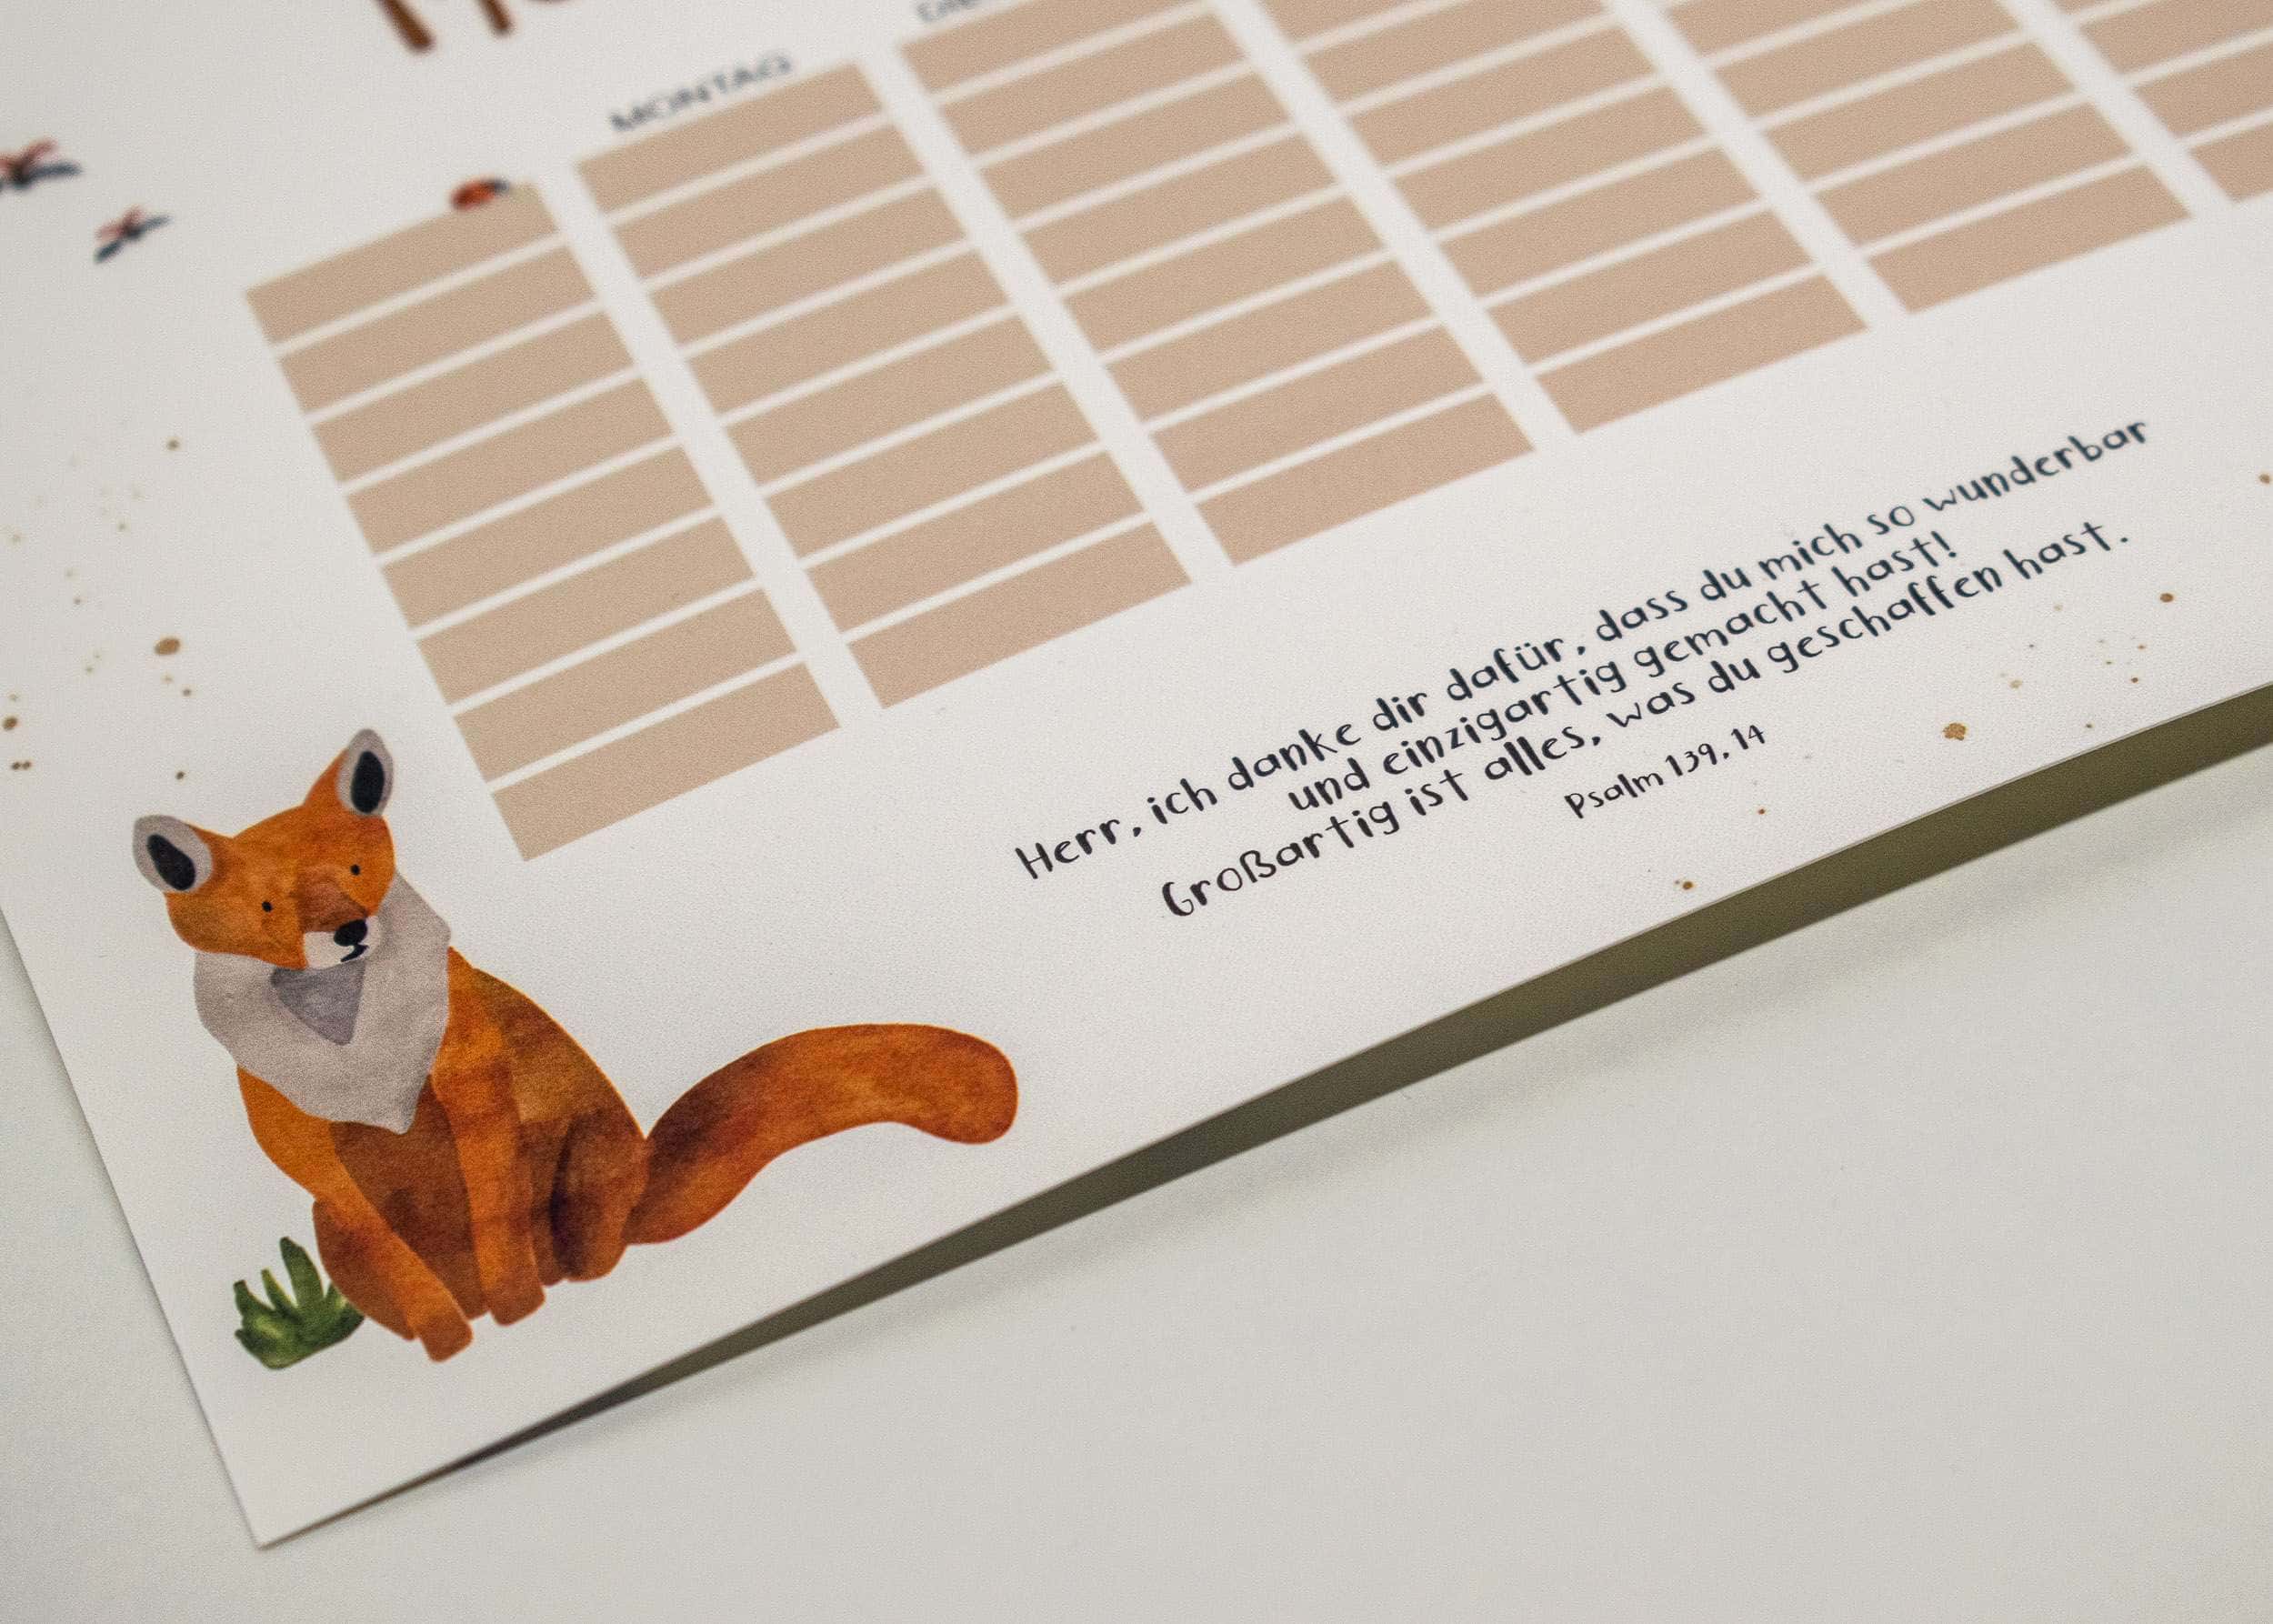 MONTAG
Herr, ich danke dir dafür, dass du mich so wunderbar
und einzigartig gemacht hast!
Großartig ist alles, was du geschaffen hast.
Psalm 139, 14